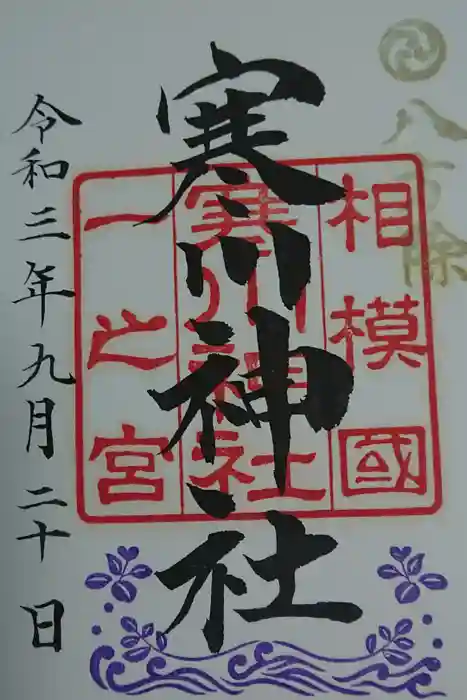 八方除
寒川神社
相模國
寒川神社
一之宮
令和三年九月二十日